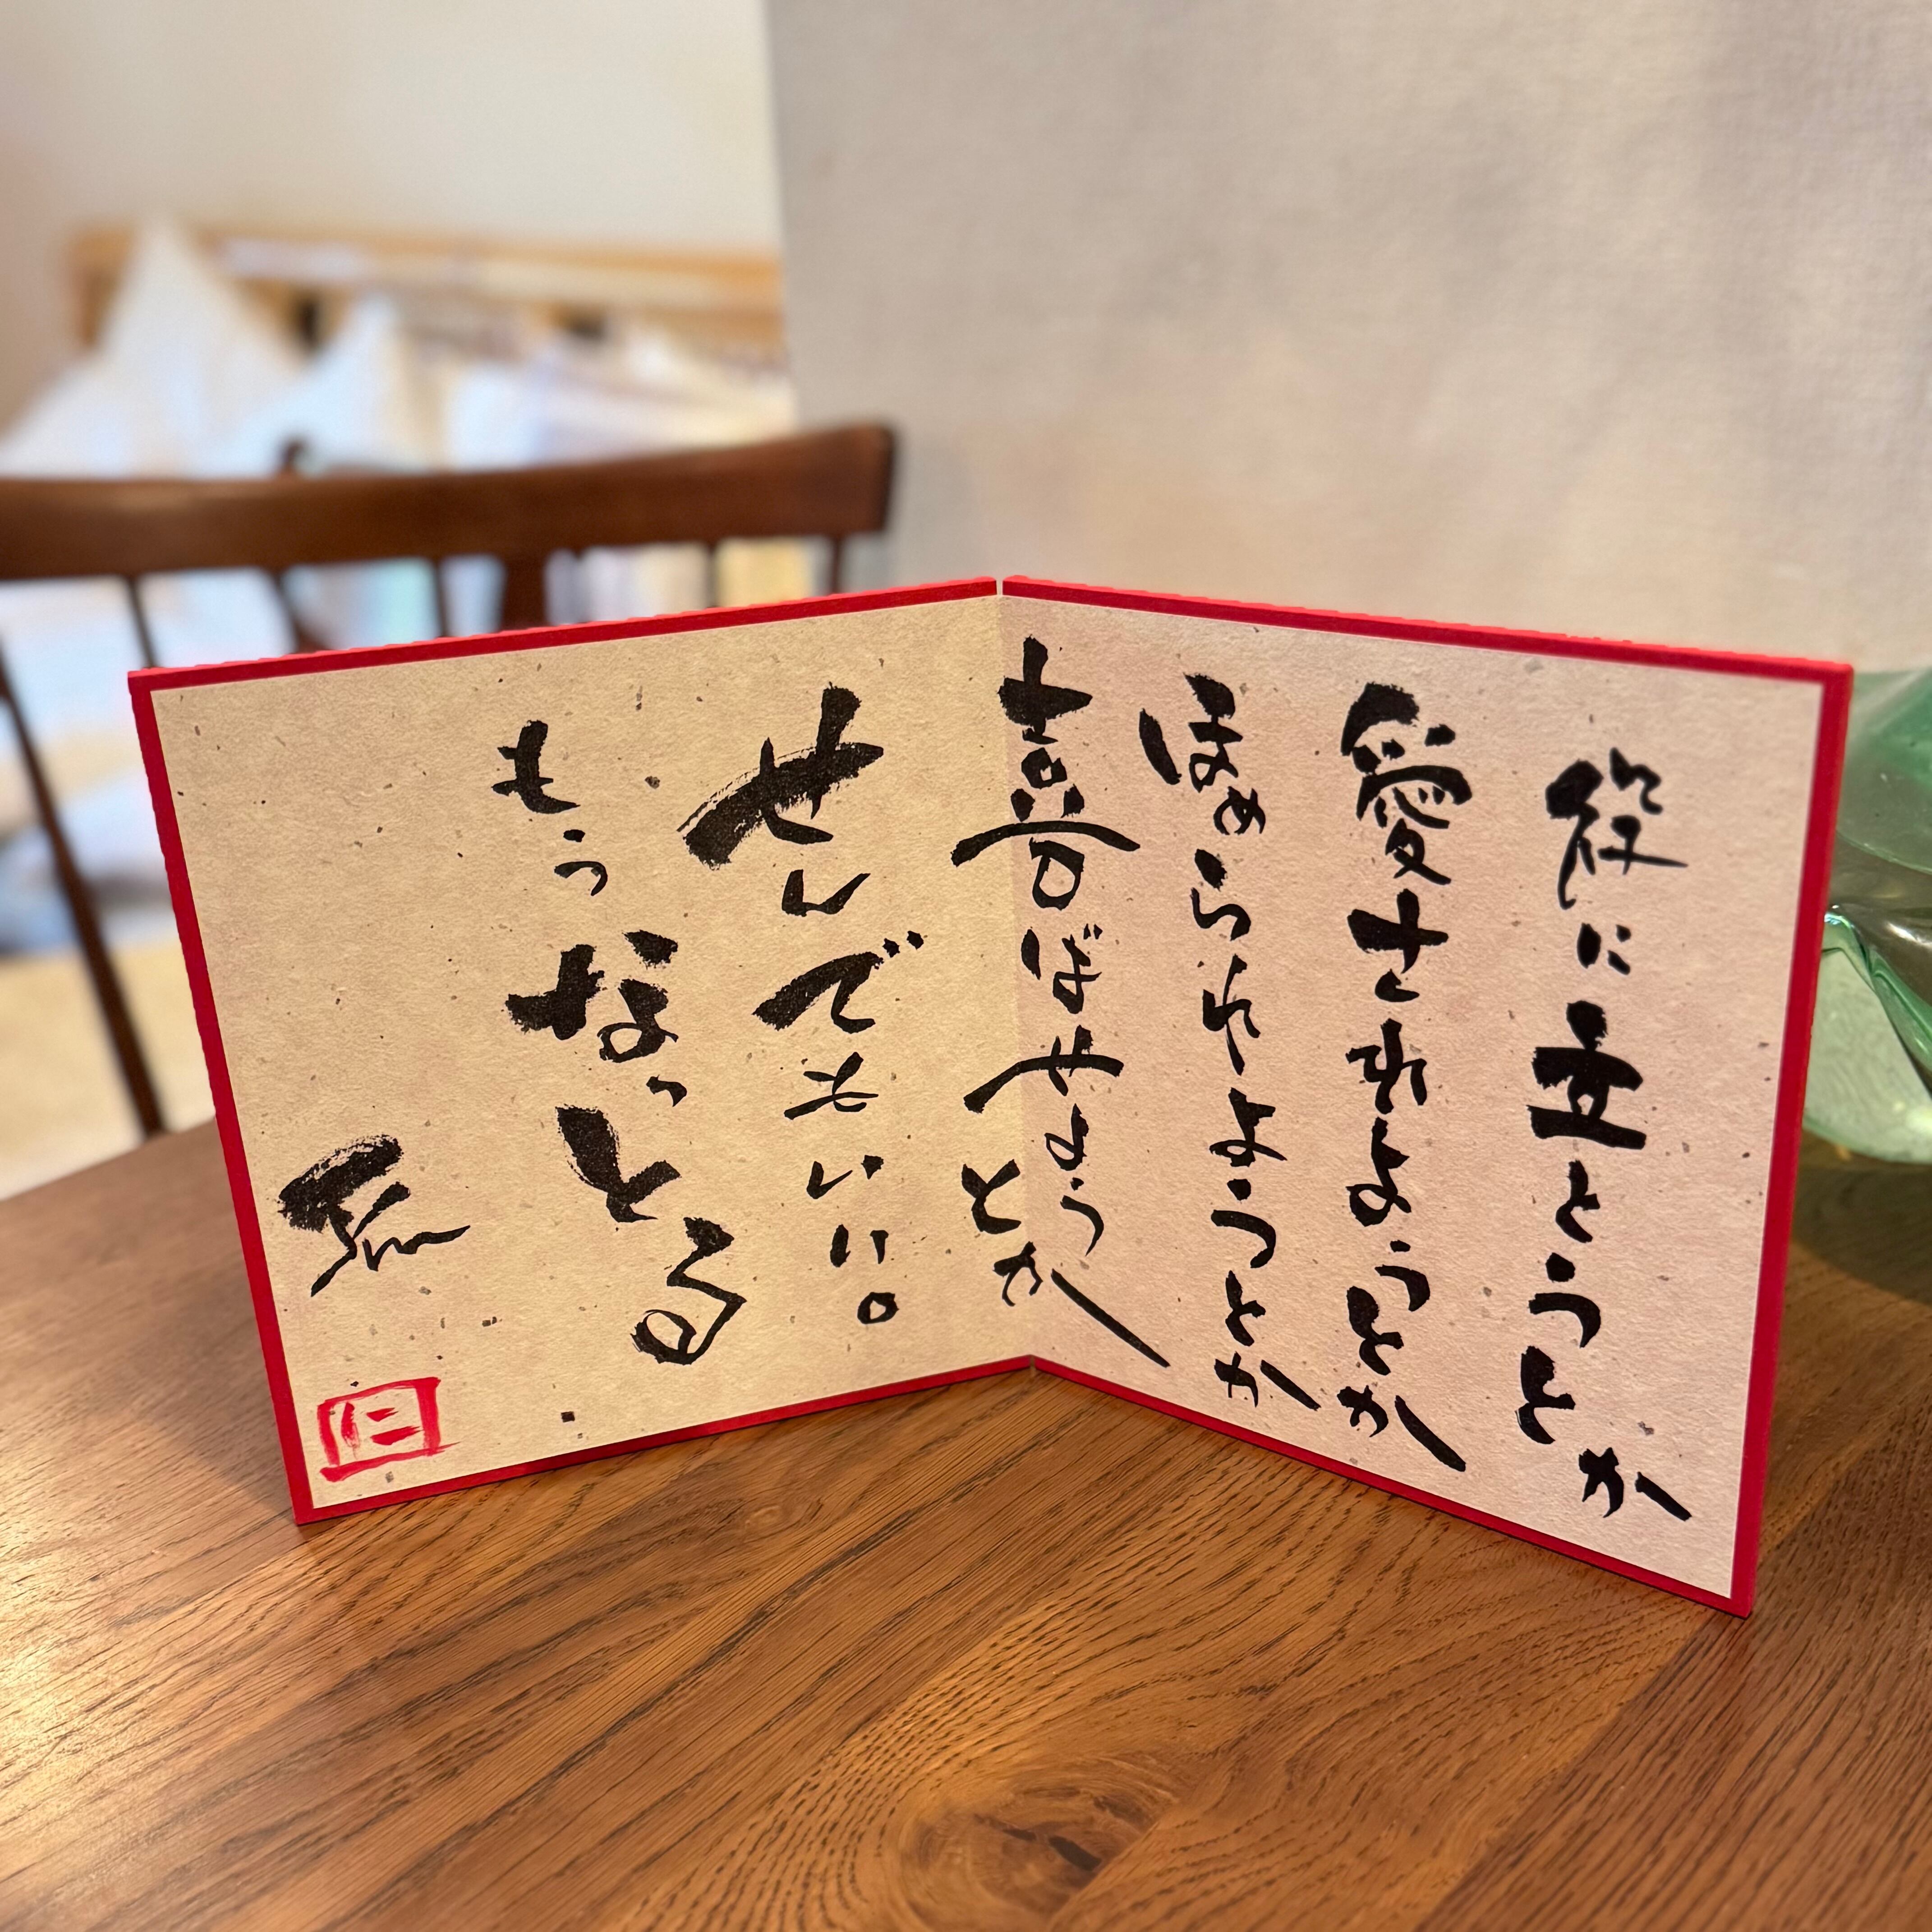 役に立とうとか
愛されようとか
ほめられようとか
喜ばせようとか
せんでもいい。
もうなっとる
仁